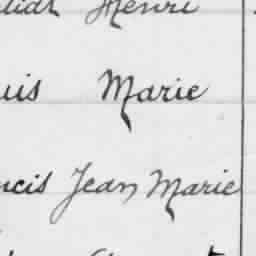 Henri
uis Marie
ncis Jean Marie